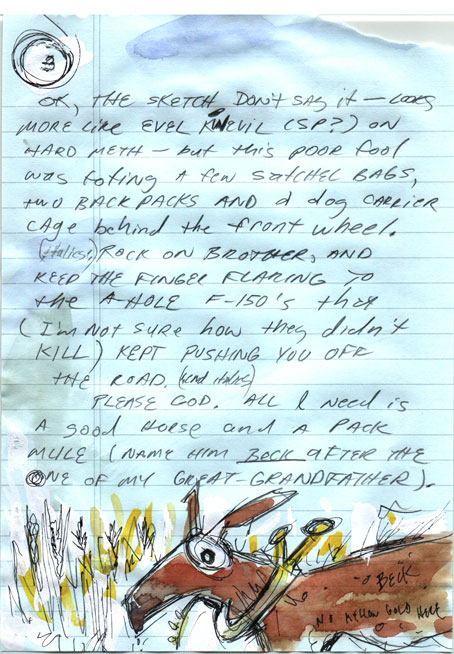 OK, THE SKETCH DON'T SAY IT — LOOKS
MORE LIKE EVEL KNEVIL (SP?) ON
HARD METH — but this POOR FOOL
WAS TOTING A FEW SATCHEL BAGS,
TWO BACK PACKS AND A dog CARRIER
CAGE behind the front wheel.
(italics:) ROCK ON BROTHER, AND
KEEP THE FINGER FLARING TO
the A-HOLE F-150's that
(I'm NOT SURE how they didn't
KILL) KEPT PUSHING YOU OFF
THE ROAD. (end italics)
PLEASE GOD. ALL I need is
A good Horse and A PACK
MULE (NAME HIM BECK AFTER THE
ONE OF MY GREAT-GRANDFATHER).
BECK
NO MELLOW GOLD HERE